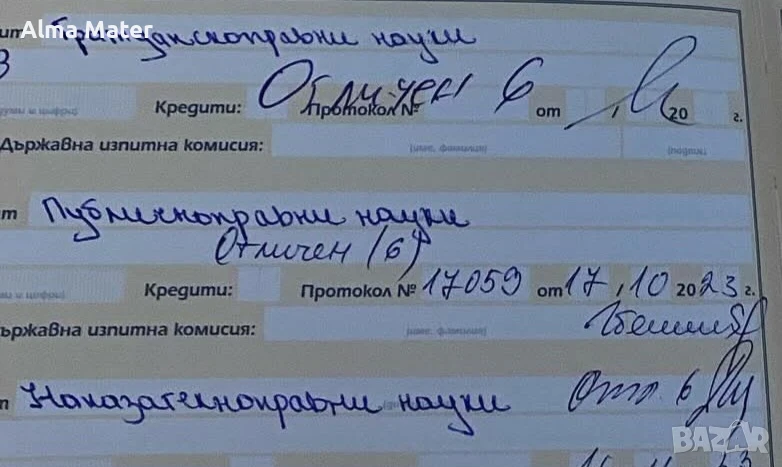 Alma Mater
ит Гражданскоправни науки
Отличен 6
Кредити: Протокол № от , 20 г.
Държавна изпитна комисия:
(име, фамилия) (подпис)
т Публичноправни науки
Отличен (6)
Кредити: Протокол № 17059 от 17, 10 2023 г.
ържавна изпитна комисия:
(име, фамилия)
Наказателноправни науки Отл. 6
BAZAR